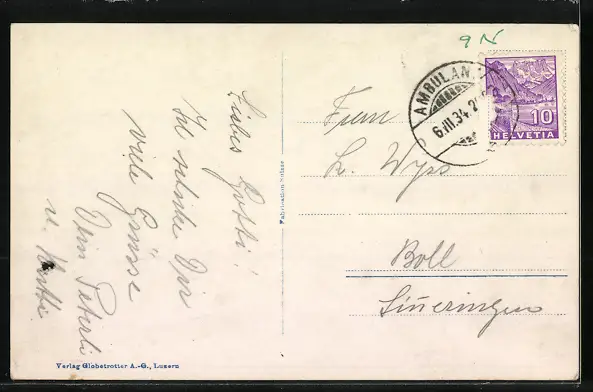 9 N
AMBULAN
6.III.34.2
10
HELVETIA
Liebes Gotti!
Ich schicke Dir
viele Grüsse
Dein Peterli
u.
Fabrication Suisse
Frau
Wyss
Boll
Sineringen
Verlag Globetrotter A.-G., Luzern